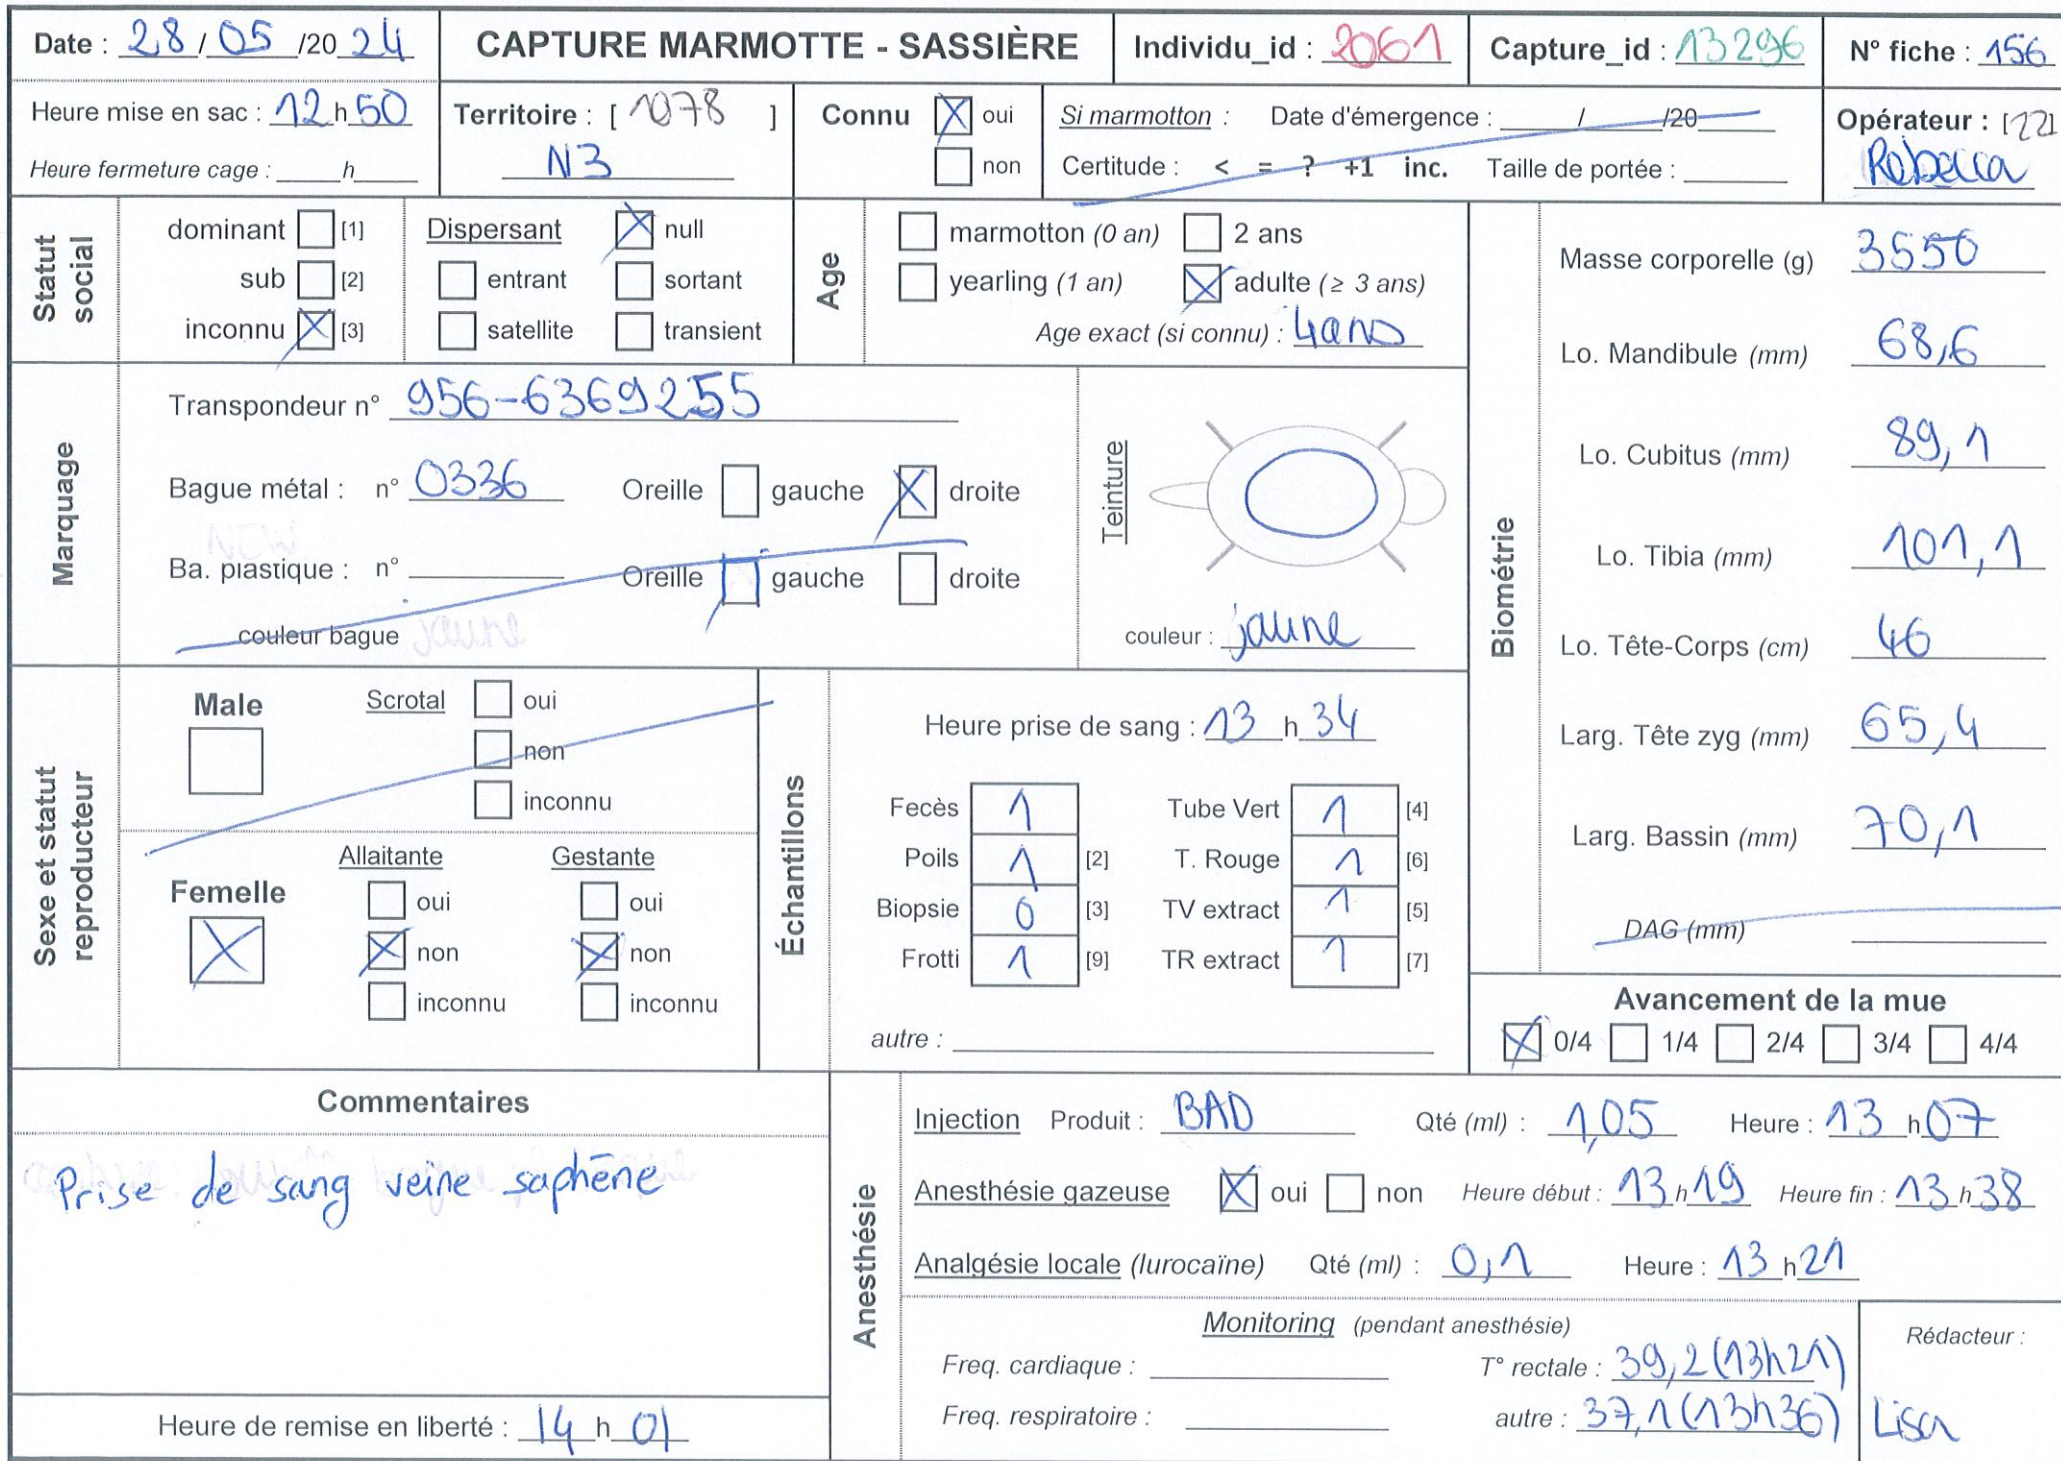 Date : 28 / 05 /20 24
CAPTURE MARMOTTE - SASSIÈRE
Individu_id : 2061
Capture_id : 13296
N° fiche : 156
Heure mise en sac : 12 h 50
Heure fermeture cage : ____ h ____
Territoire : [ 1078 ]
N3
Connu
oui
non
Si marmotton : Date d'émergence : ____ / ____ /20 ____
Certitude : < = ? +1 inc. Taille de portée : ____
Opérateur : [22]
Rebecca
Statut social
dominant [1]
sub [2]
inconnu [3]
Dispersant
null
entrant
sortant
satellite
transient
Age
marmotton (0 an)
2 ans
yearling (1 an)
adulte (≥ 3 ans)
Age exact (si connu) : 4ans
Marquage
Transpondeur n° 956-6369255
Bague métal : n° 0336 Oreille gauche droite
NEW
Ba. plastique : n° ____ Oreille gauche droite
couleur bague jaune
Teinture
couleur : jaune
Biométrie
Masse corporelle (g) 3550
Lo. Mandibule (mm) 68,6
Lo. Cubitus (mm) 89,1
Lo. Tibia (mm) 101,1
Lo. Tête-Corps (cm) 46
Larg. Tête zyg (mm) 65,4
Larg. Bassin (mm) 70,1
DAG (mm)
Sexe et statut reproducteur
Male
Scrotal
oui
non
inconnu
Femelle
Allaitante
oui
non
inconnu
Gestante
oui
non
inconnu
Échantillons
Heure prise de sang : 13 h 34
Fecès 1
Tube Vert 1 [4]
Poils 1 [2]
T. Rouge 1 [6]
Biopsie 0 [3]
TV extract 1 [5]
Frotti 1 [9]
TR extract 1 [7]
autre :
Avancement de la mue
0/4 1/4 2/4 3/4 4/4
Commentaires
Prise de sang veine saphène
Heure de remise en liberté : 14 h 01
Anesthésie
Injection Produit : BAD Qté (ml) : 1,05 Heure : 13 h 07
Anesthésie gazeuse oui non Heure début : 13 h 19 Heure fin : 13 h 38
Analgésie locale (lurocaïne) Qté (ml) : 0,1 Heure : 13 h 21
Monitoring (pendant anesthésie)
Freq. cardiaque :
T° rectale : 39,2 (13h21)
Freq. respiratoire :
autre : 37,1 (13h36)
Rédacteur :
Lisa